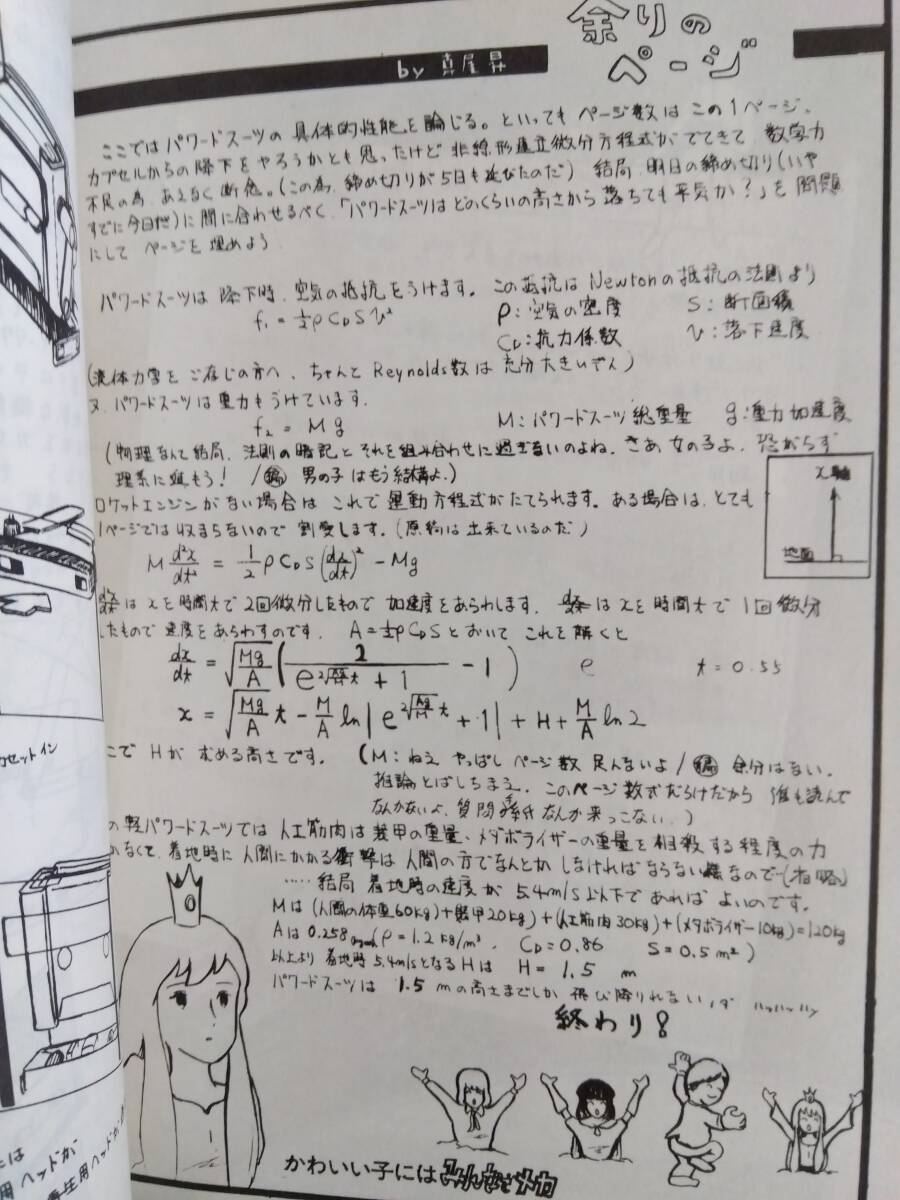 余りの
ページ
by 真屋昇
ここではパワードスーツの具体的性能を論じる。といってもページ数はこの1ページ、
カプセルからの降下をやろうかとも思ったけど非線形連立微分方程式がでてきて 数学力
不足の為、あえなく断念。(この為、締め切りが5日も延びたのだ) 結局、明日の締め切り(いや
すでに今日だ)に間に合わせるべく、「パワードスーツはどのくらいの高さから落ちても平気か?」を問題
にして ページを埋めよう
パワードスーツは 降下時、空気の抵抗をうけます。この抵抗は Newtonの抵抗の法則より
f₁ = ½ρC_DSV² ρ:空気の密度 S:断面積
C_D:抗力係数 v:落下速度
(流体力学をご存じの方へ、ちゃんと Reynolds数は 充分大きいぞん)
又、パワードスーツは重力もうけています。
f₂ = Mg M:パワードスーツ総重量 g:重力加速度
(物理なんて結局、法則の暗記とそれを組み合わせに過ぎないのよね。さあ、女の子よ、恐がらず
理系に進もう! /編 男の子はもう結構よ。)
x軸
地面
ロケットエンジンがない場合は これで運動方程式がたてられます。ある場合は、とても
1ページでは収まらないので 割愛します。(原稿は出来ているのだ)
M d²x/dt² = 1/2 ρC_DS(dx/dt)² - Mg
d²x/dt² は xを時間tで2回微分したもので 加速度をあらわします。 dx/dt は xを時間tで1回微分
したもので 速度をあらわすのです。 A=½ρC_DSとおいて これを解くと
dx/dt = √(Mg/A) (2/(e^(2√(Ag/M) t) + 1) - 1) e t = 0.55
x = √(Mg/A) t - M/A ln|e^(2√(Ag/M) t) + 1| + H + M/A ln2
こで Hが求める高さです。 (M:ねえ やっぱし ページ数 足んないよ/編 余分はない。
推論とばしちまえ。このページ数式だらけだから 誰も読んで
なんかないよ、質問 なんか来っこない。)
の軽パワードスーツでは 人工筋肉は装甲の重量、メタボライザーの重量を相殺する程度の力
かなくて、着地時に人間にかかる衝撃は人間の方でなんとかしなければならない様なので-(省略)
……結局 着地時の速度が 5.4m/s以下であればよいのです。
Mは(人間の体重60kg)+(装甲20kg)+(人工筋肉30kg)+(メタボライザー10kg)=120kg
Aは 0.258 (ρ=1.2kg/m³, C_D=0.86 S=0.5m²)
以上より 着地時 5.4m/sとなるHは H = 1.5 m
パワードスーツは 1.5mの高さまでしか 飛び降りれない ハッハッハッ
終わり!
かわいい子にはみんなでメカ
カセットイン
には
用ヘッドが
再生用ヘッドが